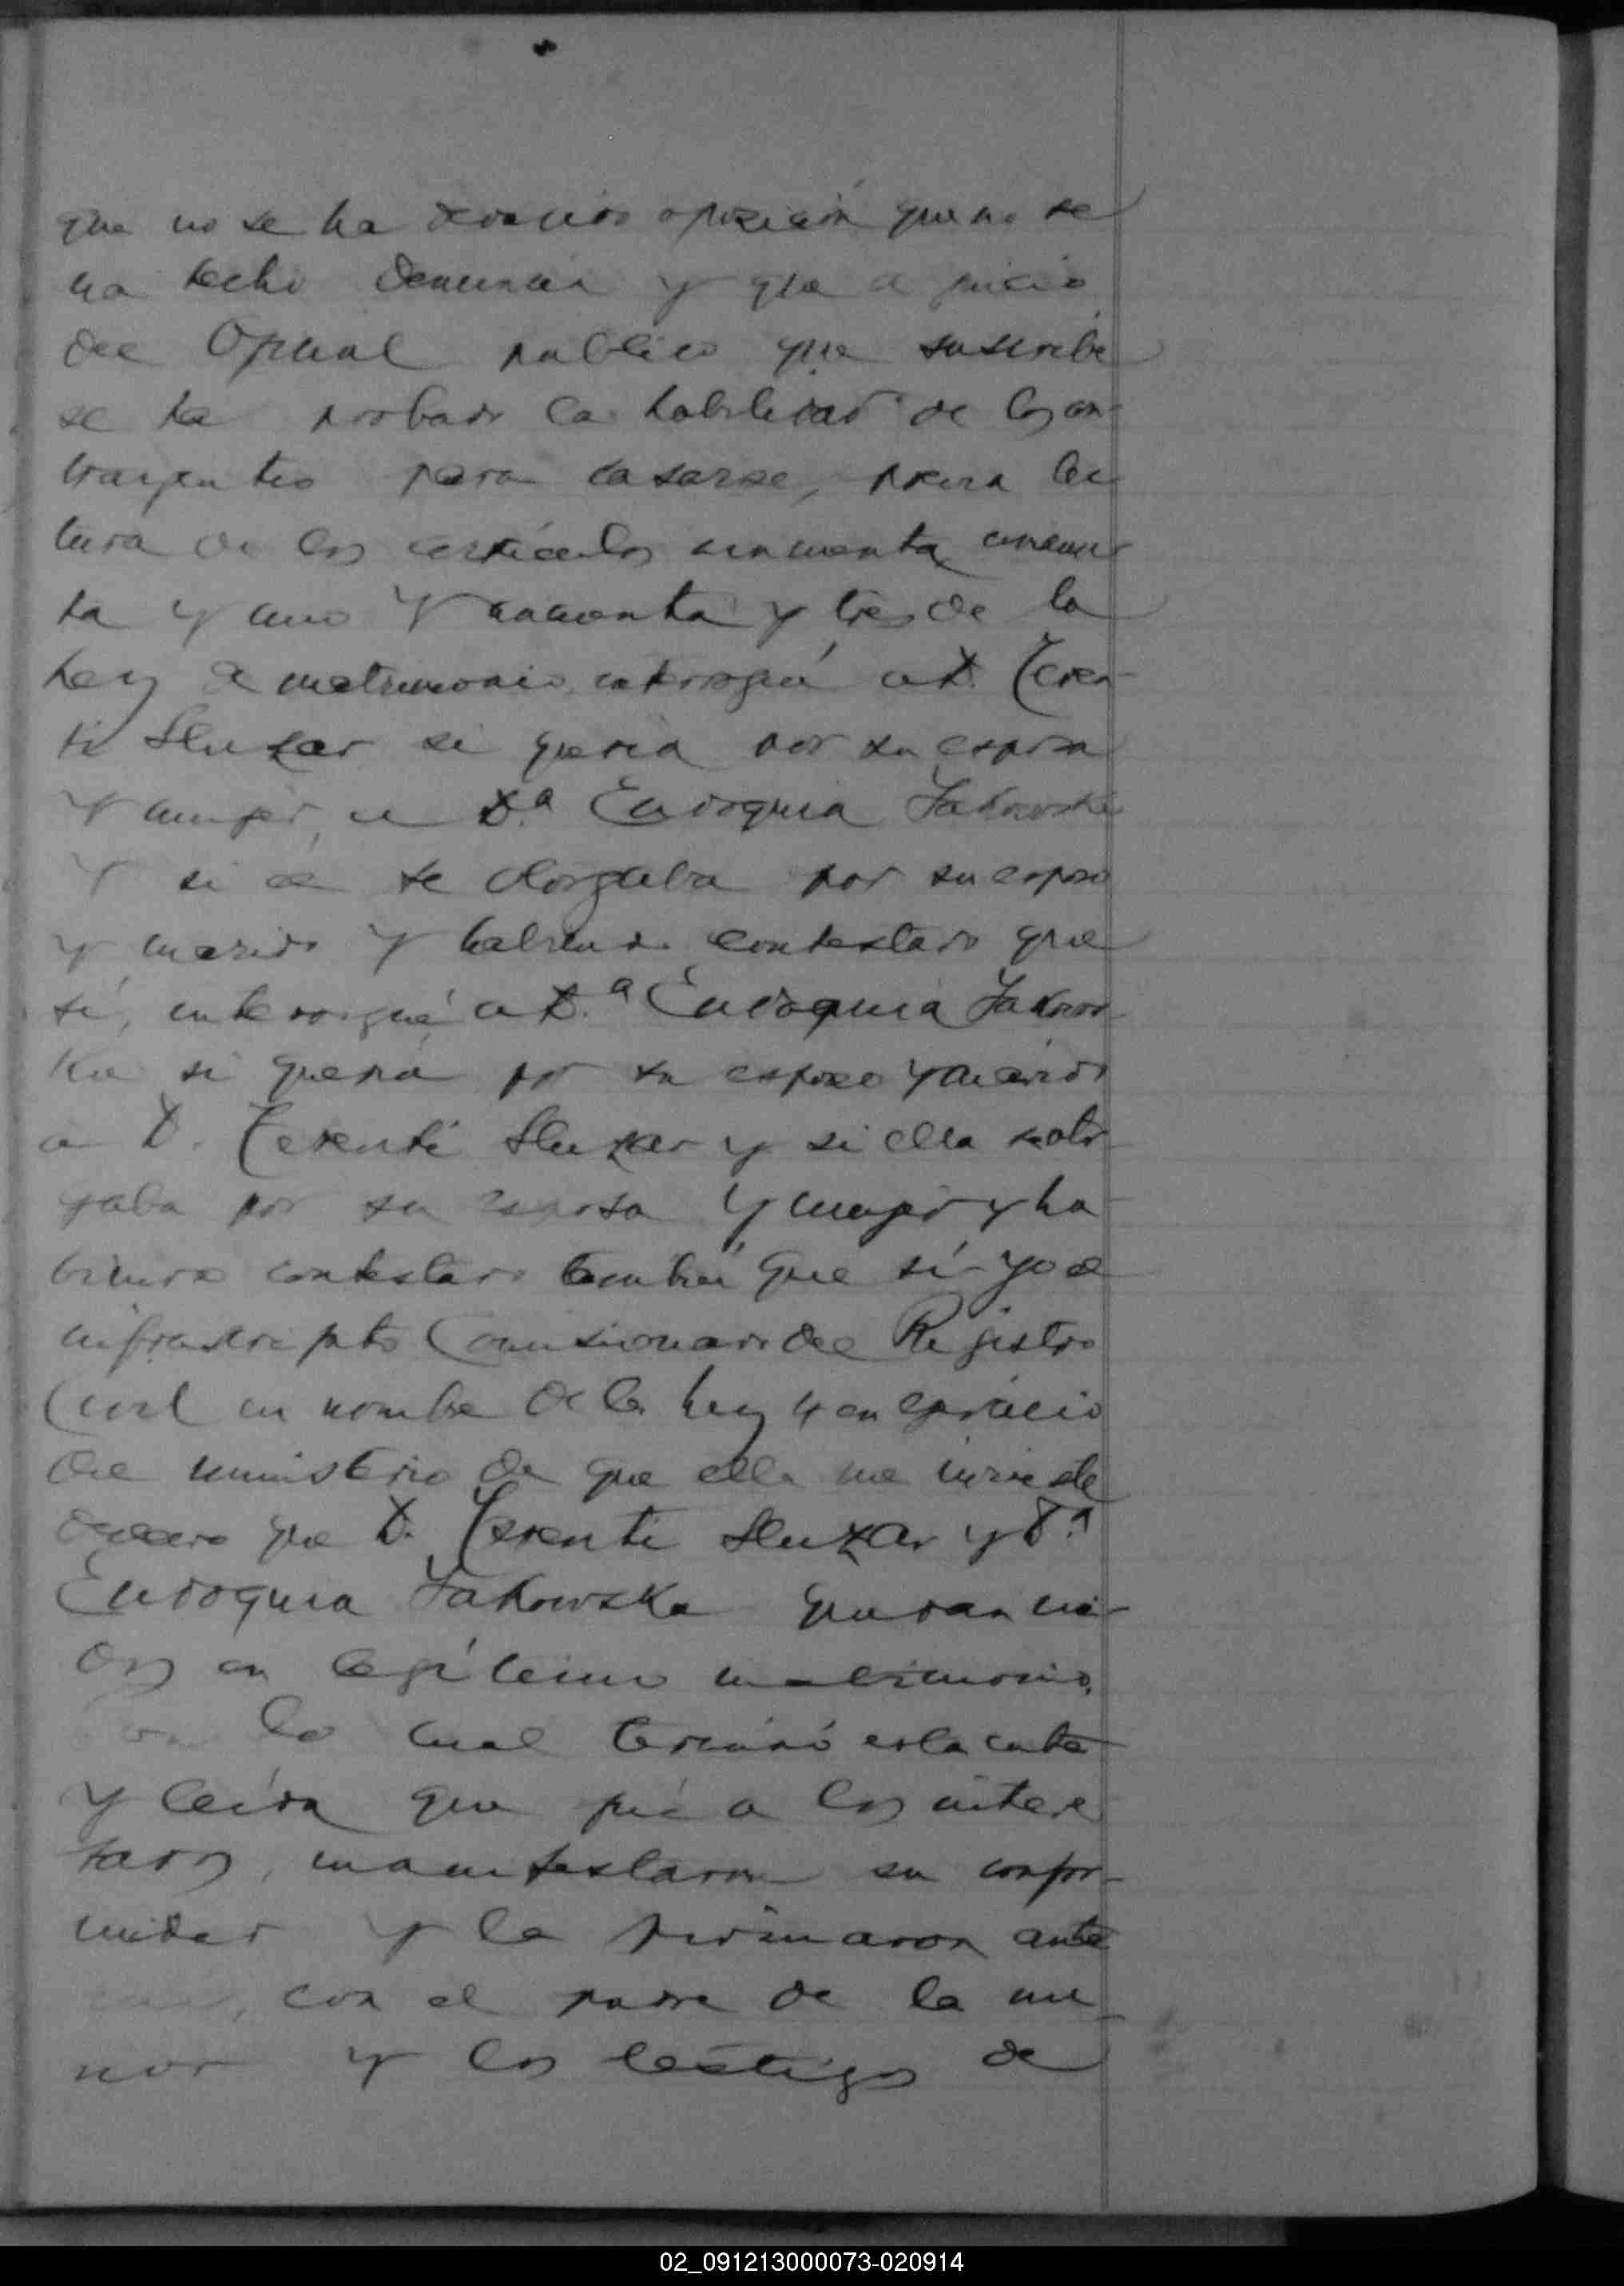 que no se ha deducido oposición que no se
ha hecho denuncia y que a juicio
del Oficial publico que suscribe
se ha probado la habilidad de los con-
trayentes para casarse, previa lec
tura de los artículos cincuenta, cincuen
ta y uno y noventa y tres de la
Ley de matrimonio, interrogué a D. Teren-
ti Sluzar si quería por su esposa
y mujer, a D.ª Eudoquia Jakowska
y si él se otorgaba por su esposo
y marido y habiendo contestado que
sí, interrogué a D.ª Eudoquia Jakows-
ka si quería por su esposo y marido
a D. Terenti Sluzar y si ella se otor-
gaba por su esposa y mujer y ha-
biendo contestado también que sí yo el
infrascripto Comisionado del Registro
Civil en nombre de la Ley y en ejercicio
del ministerio de que ella me inviste
declaro que D. Terenti Sluzar y D.ª
Eudoquia Jakowska quedan uni-
dos en legítimo matrimonio.
Con lo cual terminó esta acta
y leída que fué a los intere
sados, manifestaron su confor-
midad y la firmaron ante
con el padre de la me-
nor y los testigos de
02_091213000073-020914